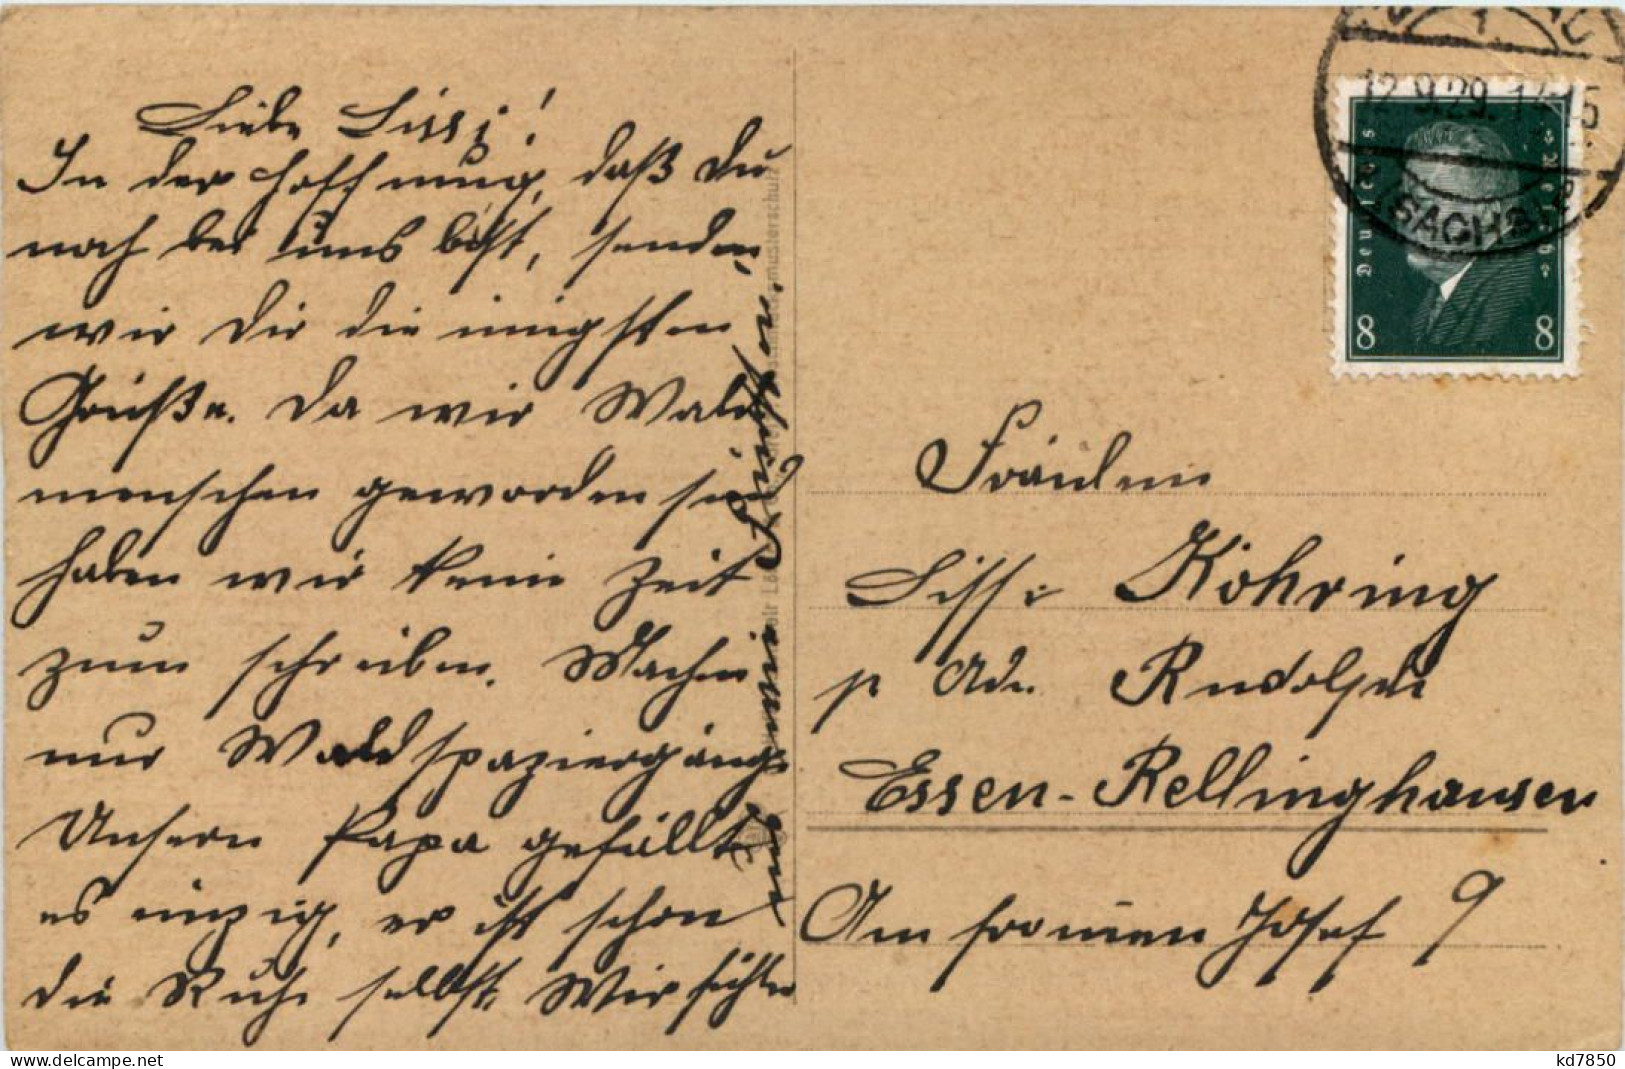 Liebe Lissi!
In der Hoffnung, daß Du
noch bei uns bist, senden
wir Dir die innigsten
Grüße. Da wir Wald
menschen geworden sind
haben wir keine Zeit
zum schreiben. Machen
nur Waldspaziergänge
Unsern Papa gefällt
es einzig, er ist schon
die Ruhe selbst. Wir
uns
12.9.29. 14-15
1
(SACHS.)
Deutsches Reich
8 8
Fräulein
Lissi Köhring
p Adr. Rudolph
Essen-Rellinghausen
Am frommen Josef 9
musterschutz
kd7850